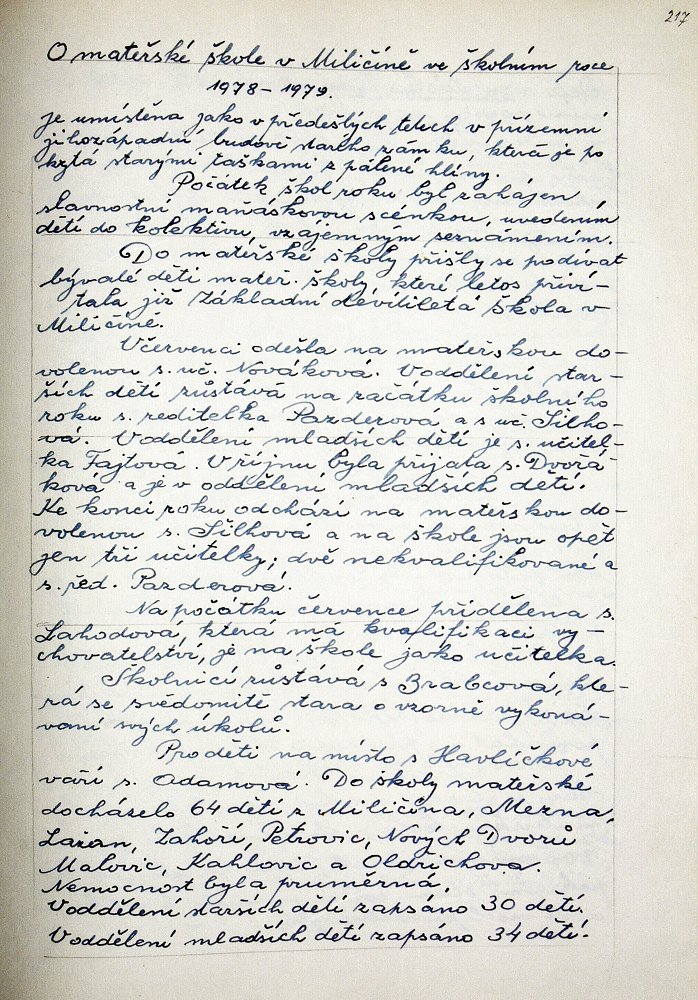 217
O mateřské škole v Miličíně ve školním roce
1978 – 1979.
je umístěna jako v předešlých letech v přízemní
jihozápadní budově starého zámku, která je po
krytá starými taškami z pálené hlíny.
Počátek škol. roku byl zahájen
slavnostní maňáskovou scénkou, uvedením
dětí do kolektivu, vzájemným seznámením.
Do mateřské školy přišly se podívat
bývalé děti mateř. školy, které letos přiví-
tala již Základní devítiletá škola v
Miličíně.
V červenci odešla na mateřskou do-
volenou s. uč. Nováková. V oddělení star-
ších dětí zůstává na začátku školního
roku s. ředitelka Pazderová a s. uč. Šilho-
vá. V oddělení mladších dětí je s. učitel-
ka Fajtová. V říjnu byla přijata s. Dvořá
ková a je v oddělení mladších dětí.
Ke konci roku odchází na mateřskou do-
volenou s. Šilhová a na škole jsou opět
jen tři učitelky; dvě nekvalifikované a
s. řed. Pazderová.
Na počátku července přidělena s.
Lahodová, která má kvalifikaci vy-
chovatelství, je na škole jako učitelka.
Školnicí zůstává s Brabcová, kte-
rá se svědomitě stara o vzorné vykoná-
vaní svých úkolů.
Pro děti na místo s Havlíčkové
vaří s. Adamová. Do školy mateřské
docházelo 64 dětí z Miličína, Mezna,
Lažan, Zahoří, Petrovic, Nových Dvorů
Malovic, Kahlovic a Oldřichova.
Nemocnost byla průměrná.
V oddělení starších dětí zapsáno 30 dětí.
V oddělení mladších dětí zapsáno 34 dětí.